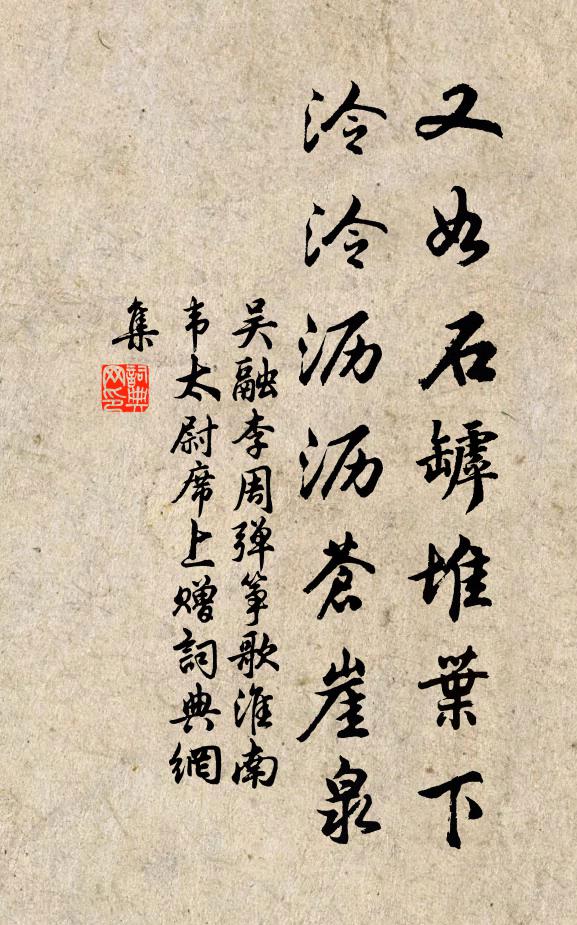 又如石罅堆葉下
泠泠沥沥蒼崖泉
吴融李周弹筝歌淮南
韦太尉席上赠詞典網
集
詞典
网印